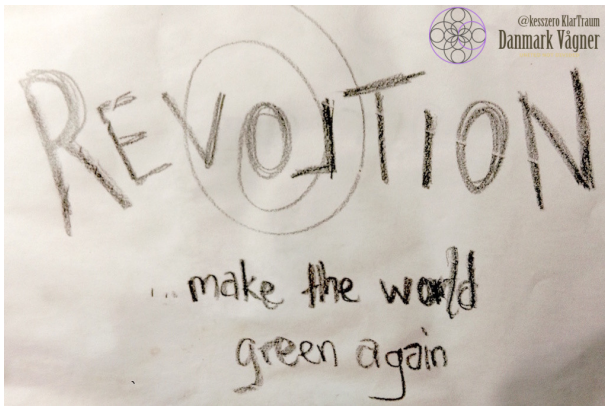 @kesszero KlarTraum
Danmark Vågner
REVO⅃TION
...make the world
green again